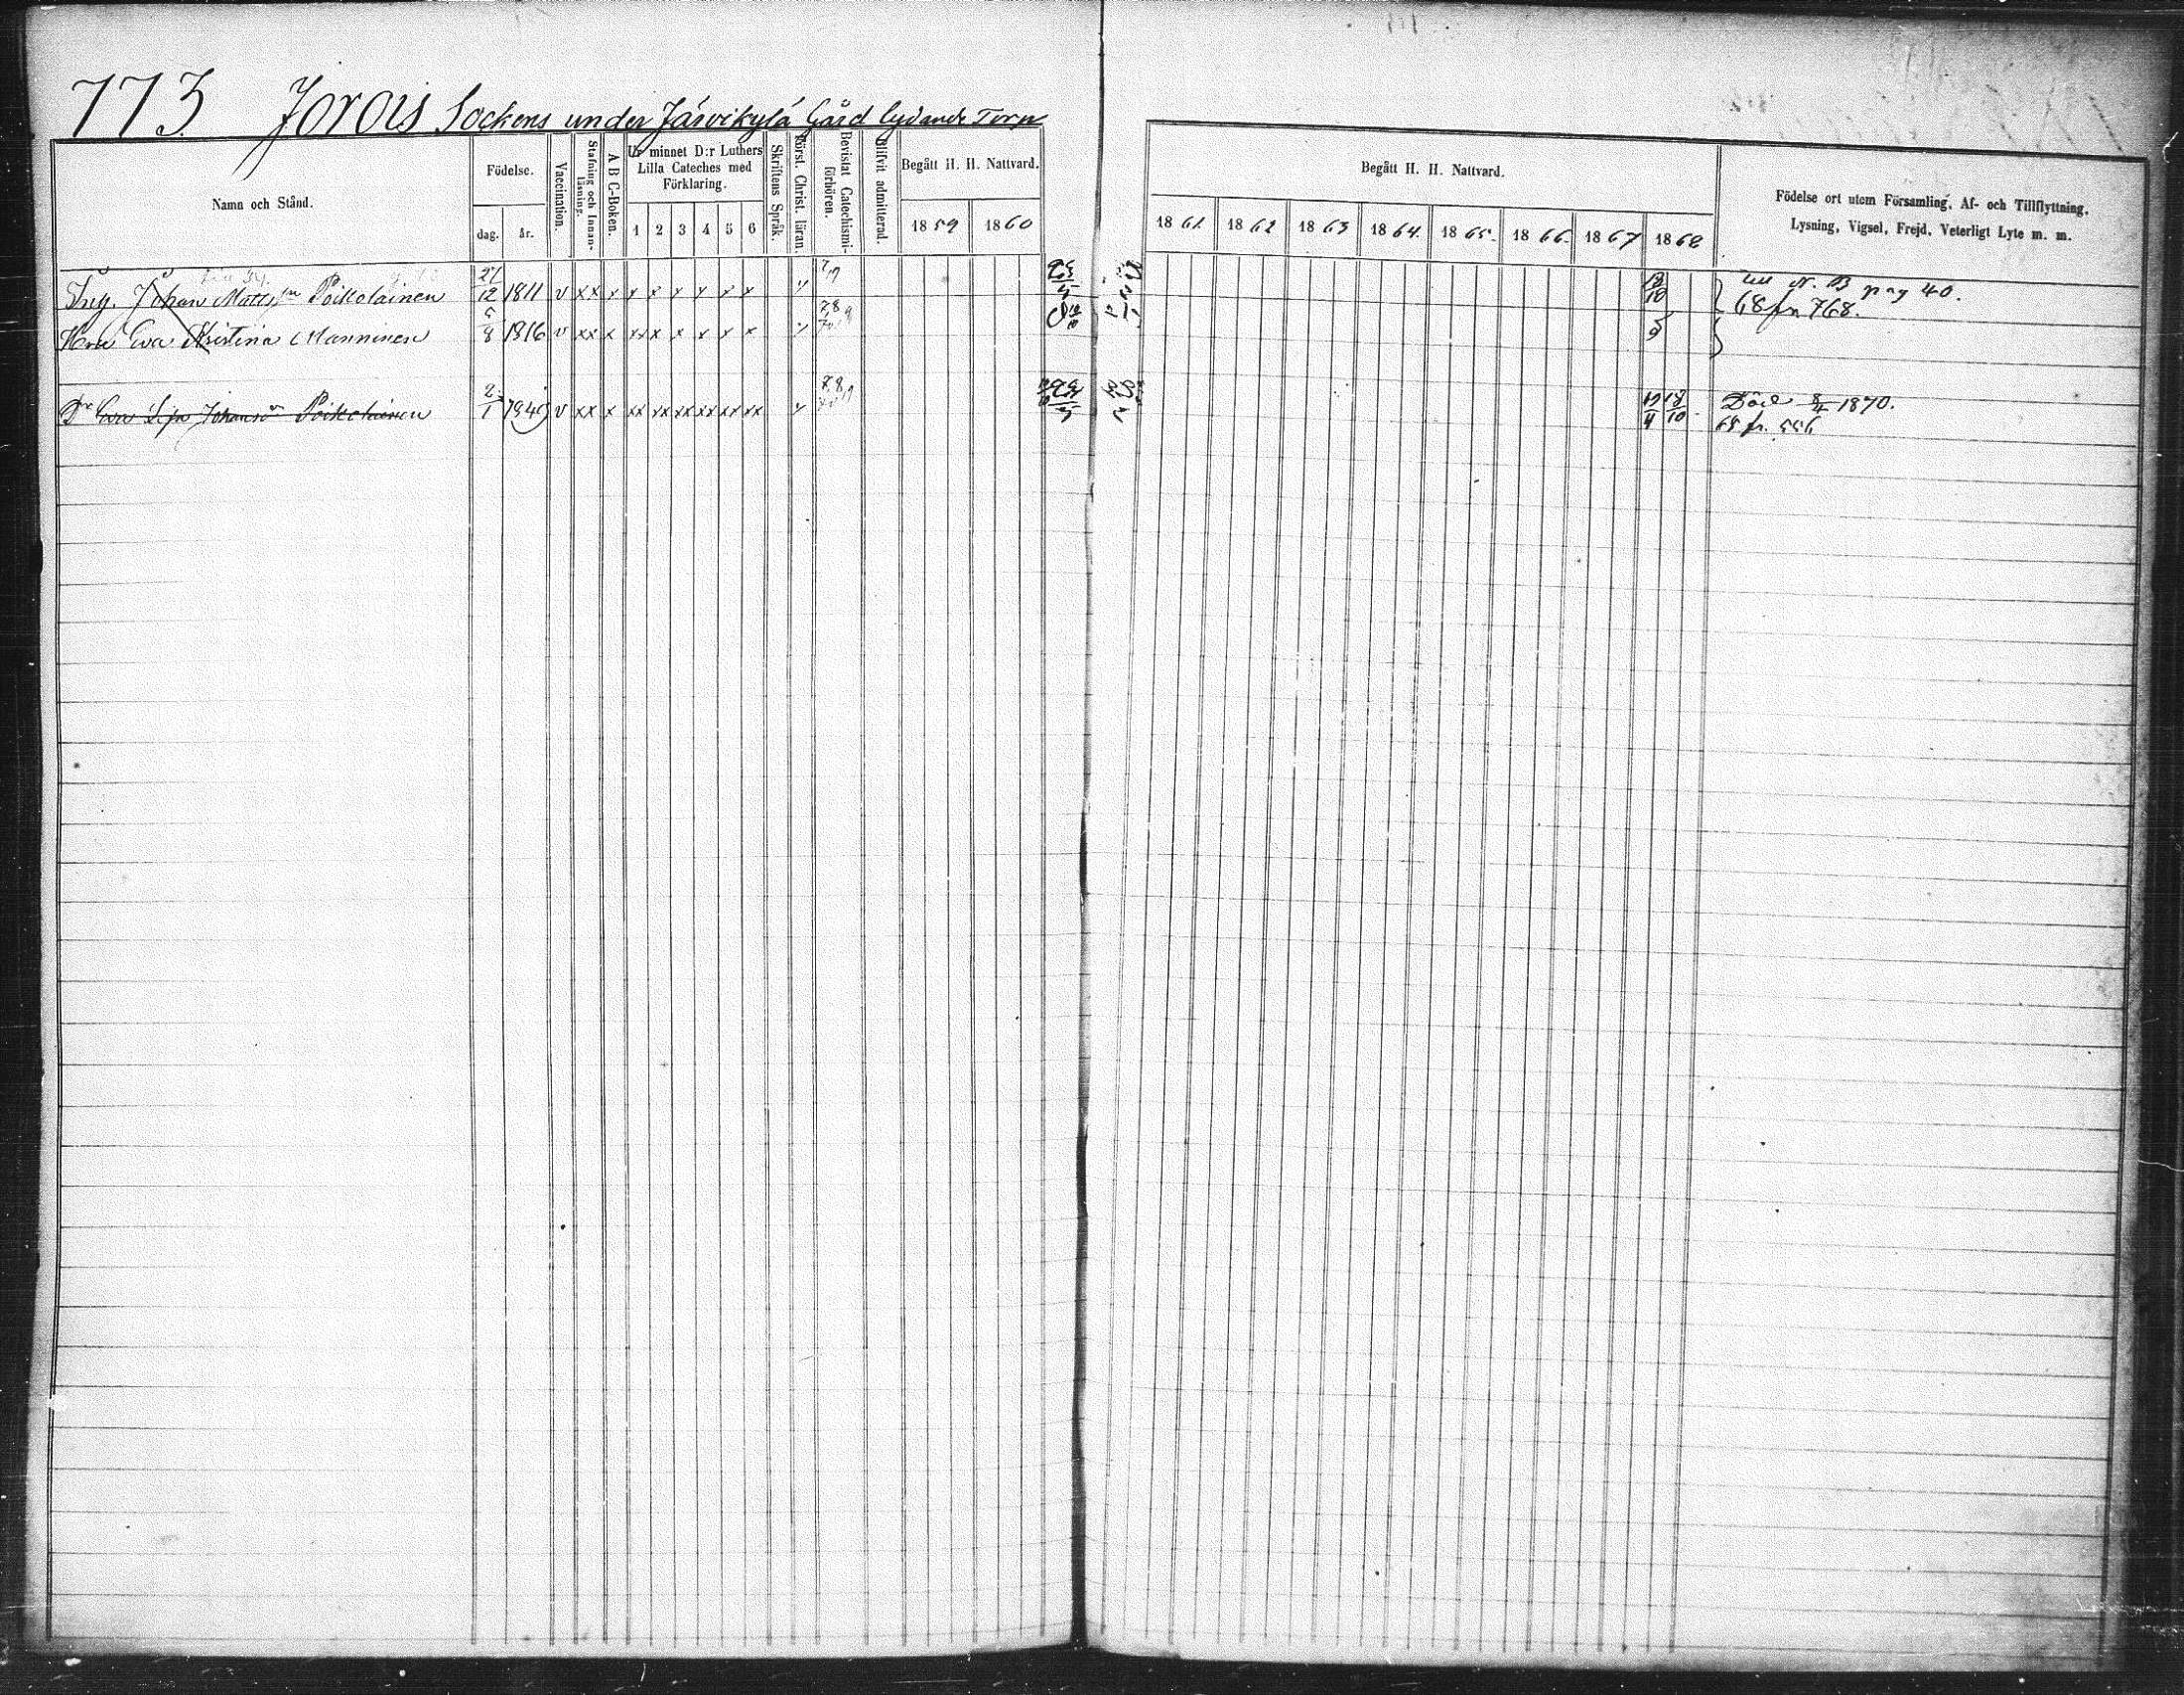 773 Jorois Sockens under Järvikylä Gård lydande Torp
Namn och Stånd.
Födelse.
dag. år.
Vaccination.
Stafning och Innanläsning.
A B C-Boken.
Ur minnet D:r Luthers Lilla Cateches med Förklaring.
1 2 3 4 5 6
Skriftens Språk.
Först. Christ. läran.
Bevistat Catechismiförhören.
Blifvit admitterad.
Begått H. H. Nattvard.
1859 1860
Begått H. H. Nattvard.
1861. 1862 1863 1864. 1865. 1866. 1867 1868
Födelse ort utom Församling, Af- och Tillflyttning,
Lysning, Vigsel, Frejd, Veterligt Lyte m. m.
Johan Mattss:n Poikolainen 27/12 1811 v xx x x x x x x x 13/10 till N. B pag 40.
68 fr 768.
Eva Kristina Manninen 5/8 1816 v xx x xx x x x x x
Dr Eva Johansdr Poikolainen 2/1 1849 v xx x xx xx xx xx xx xx 18/10 Död 8/4 1870.
68 fr. 556